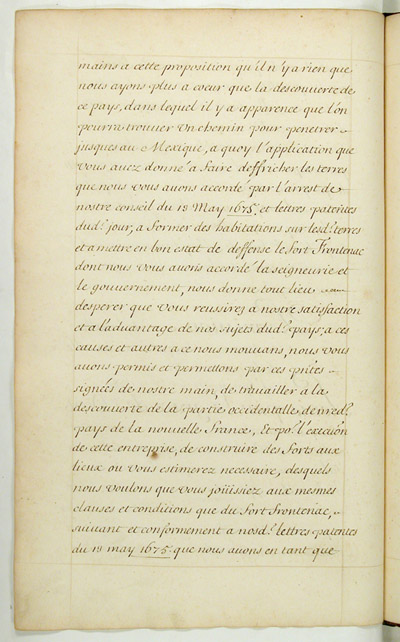 mains a cette proposition qu'il n'y a rien que
nous ayons plus a coeur que la descouverte de
ce pays, dans lequel il y a apparence que l'on
pourra trouver un chemin pour penetrer
jusques au Mexique, a quoy l'application que
vous avez donné a faire deffricher les terres
que nous vous avons accordé par l'arrest de
nostre conseil du 13 May 1675, et lettres patentes
dud.t jour, a former des habitations sur lesd.t terres
et a mettre en bon estat de deffense le fort Frontenac
dont nous vous avons accordé la seigneurie et
le gouvernement, nous donne tout lieu
desperer que vous reussirez a nostre satisfaction
et a l'advantage de nos sujets dud.t pays; a ces
causes et autres a ce nous mouvans, nous vous
avons permis et permettons par ces pñtes
signées de nostre main, de travailler à la
descouverte de la partie occidentalle, de nred.t
pays de la nouvelle France, Et po.r l'execuôn
de cette entreprise, de construire des forts aux
lieux ou vous estimerez necessaire, desquels
nous voulons que vous joüissiez aux mesmes
clauses et conditions que du fort frontenac,
suivant et conformement a nosd.t lettres patentes
du 13 may 1675. que nous avons en tant que